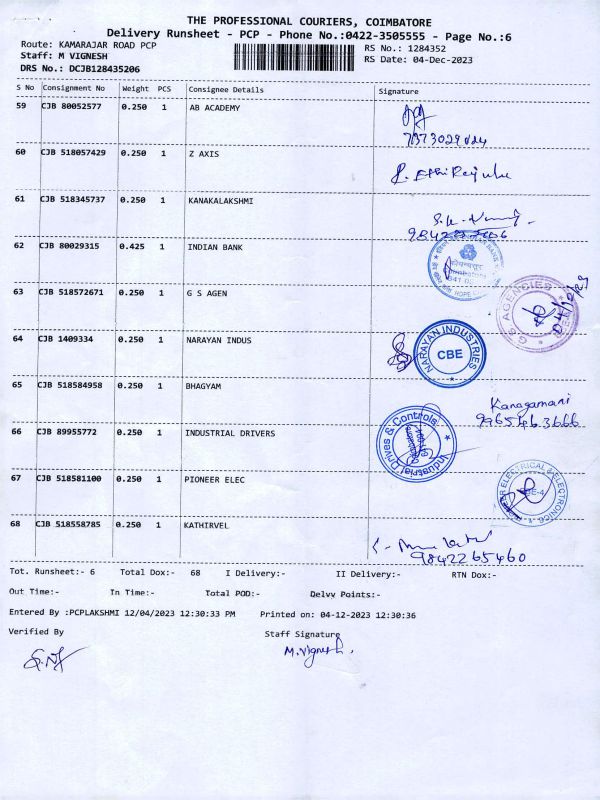 THE PROFESSIONAL COURIERS, COIMBATORE
Delivery Runsheet - PCP - Phone No.:0422-3505555 - Page No.:6
Route: KAMARAJAR ROAD PCP RS No.: 1284352
Staff: M VIGNESH RS Date: 04-Dec-2023
DRS No.: DCJB128435206
S No Consignment No Weight PCS Consignee Details Signature
59 CJB 80052577 0.250 1 AB ACADEMY
60 CJB 518057429 0.250 1 Z AXIS
61 CJB 518345737 0.250 1 KANAKALAKSHMI
62 CJB 80029315 0.425 1 INDIAN BANK
63 CJB 518572671 0.250 1 G S AGEN
G S AGENCIES
64 CJB 1409334 0.250 1 NARAYAN INDUS
NARAYAN INDUSTRIES
CBE
65 CJB 518584958 0.250 1 BHAGYAM
Kanagamani
9965463666
66 CJB 89955772 0.250 1 INDUSTRIAL DRIVERS
Industrial Drives & Controls
67 CJB 518581100 0.250 1 PIONEER ELEC
ELECTRICAL & ELECTRONICS
CBE-4
68 CJB 518558785 0.250 1 KATHIRVEL
9842265460
Tot. Runsheet:- 6 Total Dox:- 68 I Delivery:- II Delivery:- RTN Dox:-
Out Time:- In Time:- Total POD:- Delvy Points:-
Entered By :PCPLAKSHMI 12/04/2023 12:30:33 PM Printed on: 04-12-2023 12:30:36
Verified By Staff Signature
M.Vignesh.